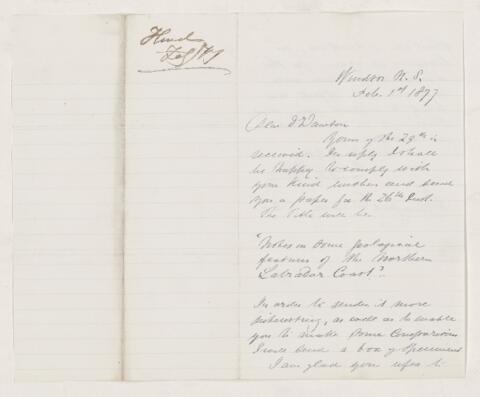 Hind
Feb 1/77
Windsor N. S.
Feb. 1st 1877
Dear Dr Dawson
Yours of the 29th is
received. In reply I shall
be happy to comply with
your kind wishes and send
you a paper for the 26th Inst.
The Title will be
"Notes on some geological
features of the Northern
Labrador Coast".
In order to render it more
interesting, as well as to enable
you to make some comparisons
I will send a box of specimens
I am glad you refer to